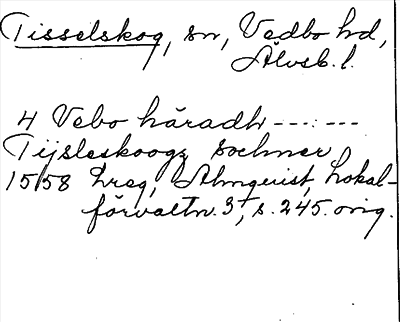 Tisselskog, sn, Vedbo hd,
Älvsb. l.
4 Vebo häradh --- : ---
Tijsleskoogz sochner
1558 Lreg, Almquist, Lokal-
förvaltn. 3, s. 245. orig.